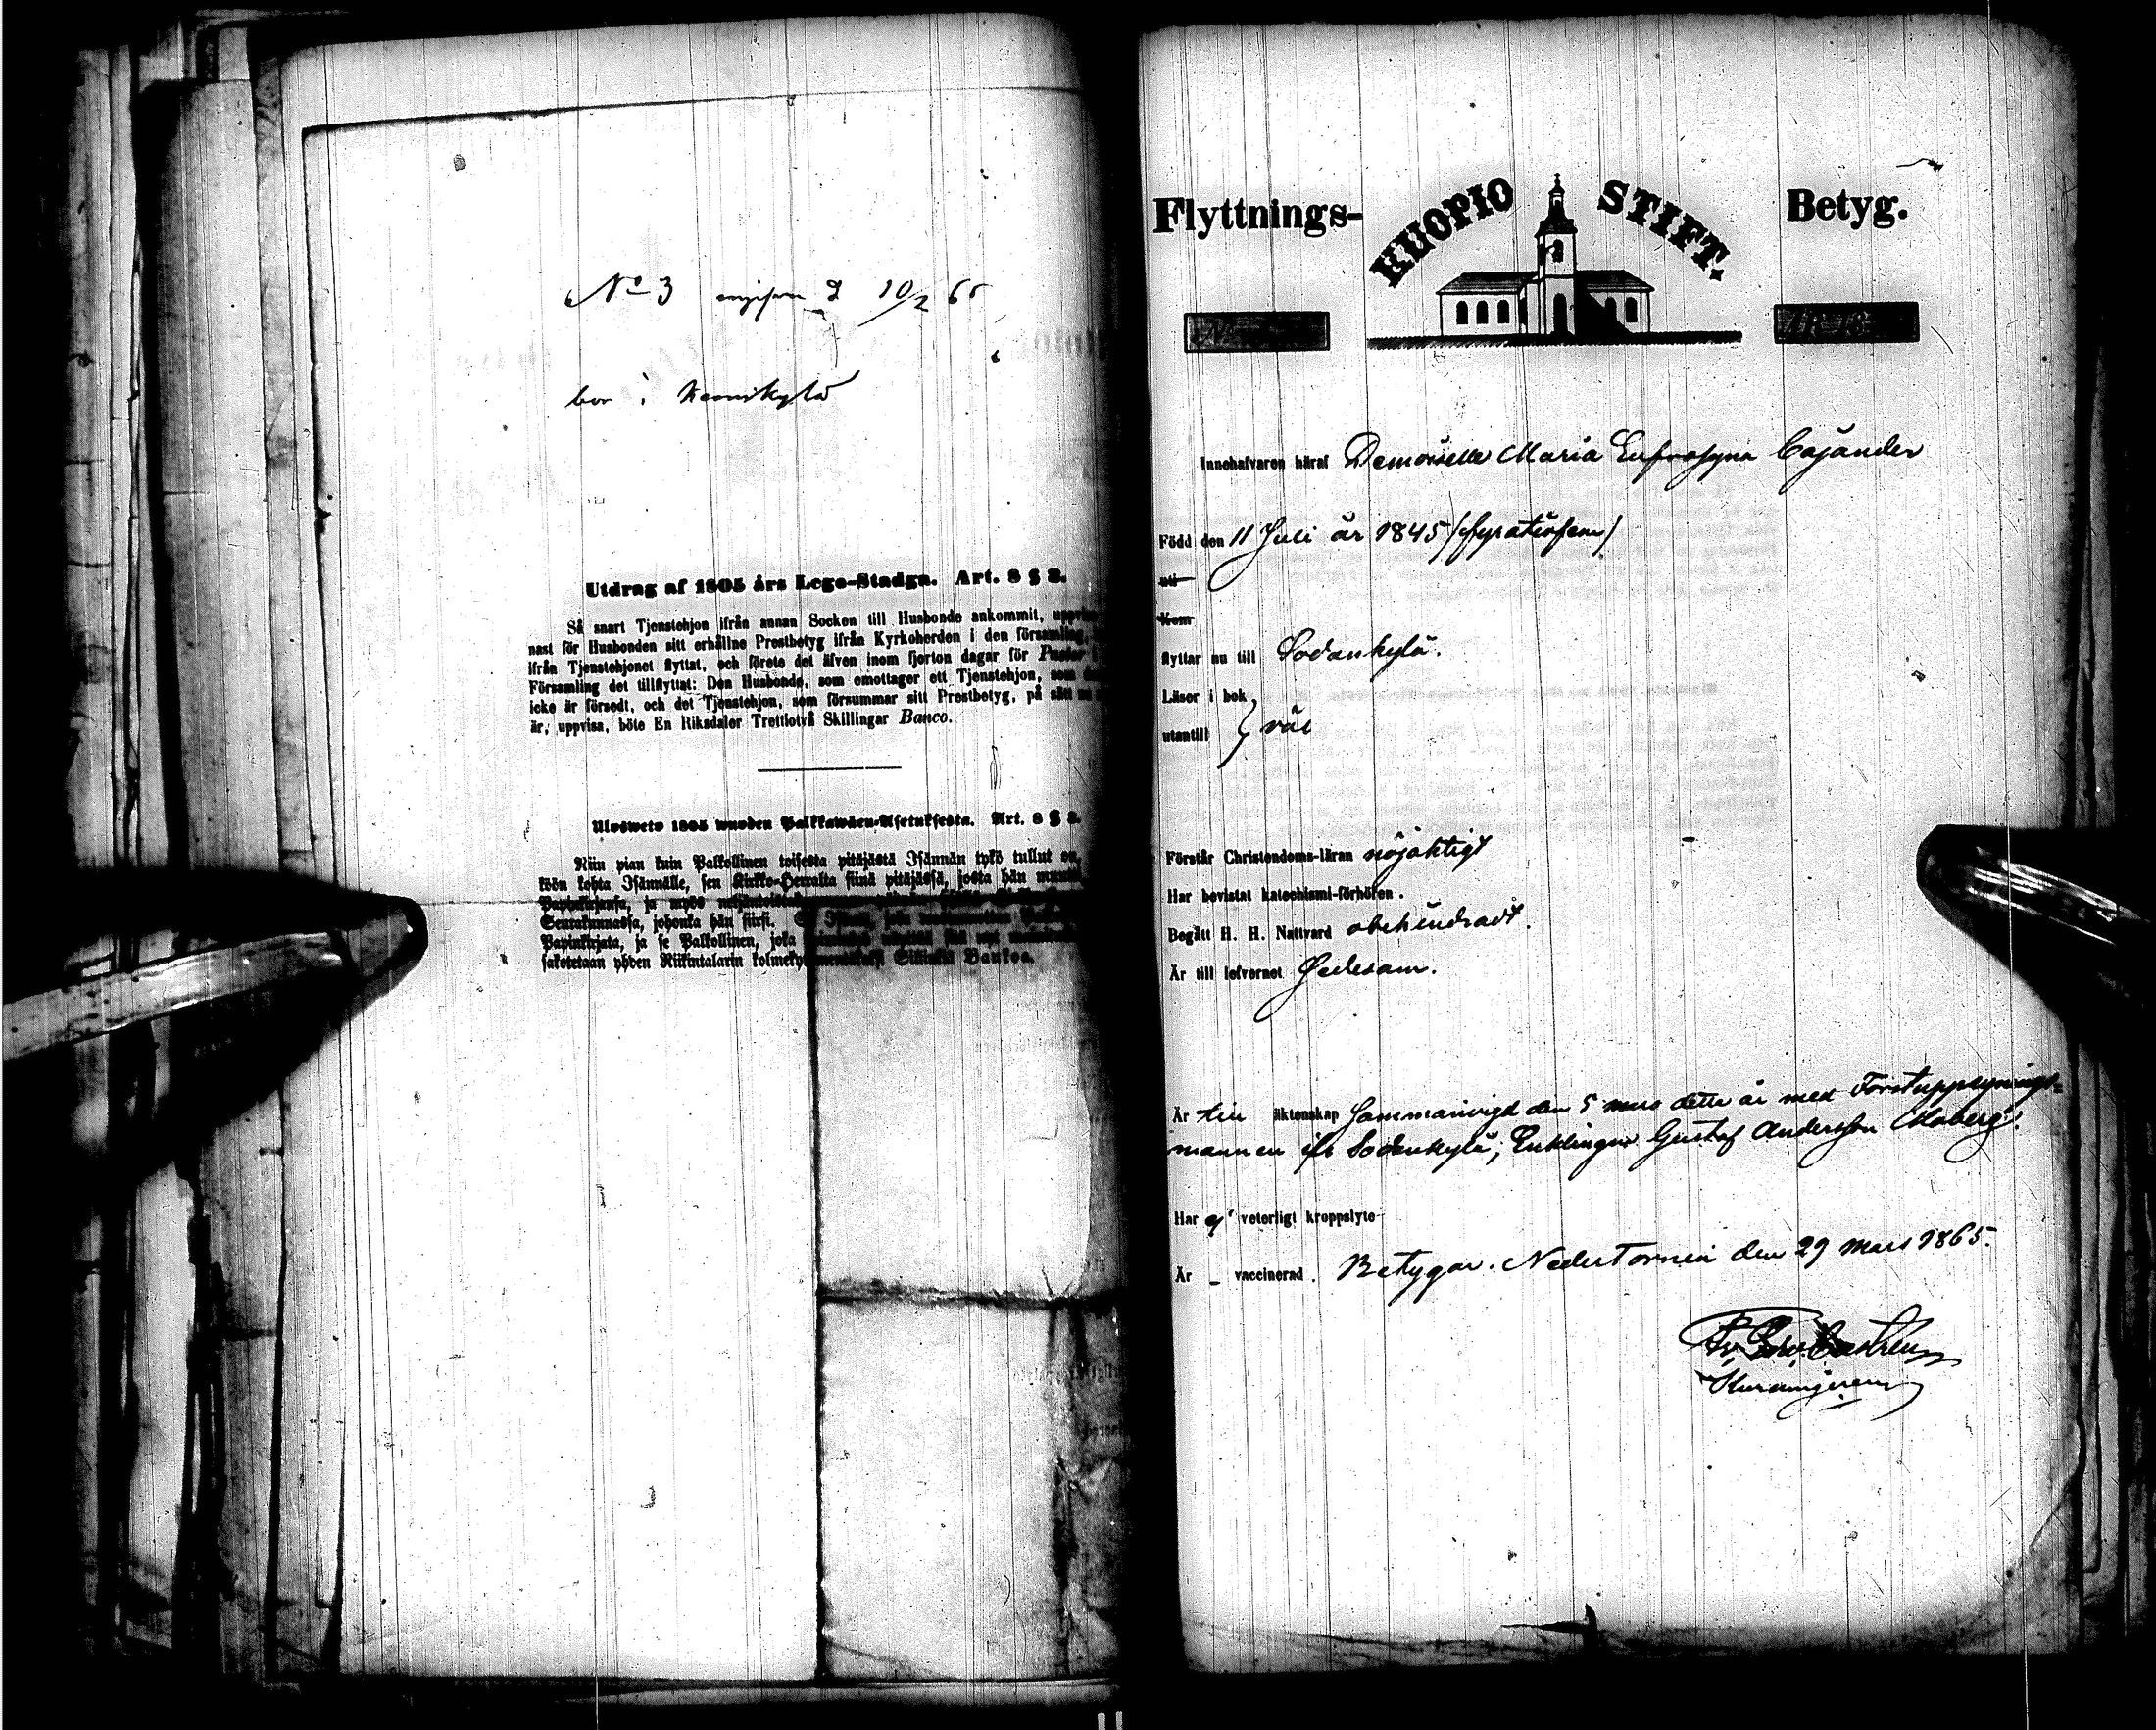 No 3 10/2 65
bor i
Utdrag af 1805 års Lego-Stadga. Art. 8 § 2.
Så snart Tjenstehjon ifrån annan Socken till Husbonde ankommit,
nast för Husbonden sitt erhållne Prestbetyg ifrån Kyrkoherden i den församling,
ifrån Tjenstehjonet flyttat, och förete det äfven inom fjorton dagar för Pastor
Församling det tillflyttat: Den Husbonde, som emottager ett Tjenstehjon, som
icke är försedt, och det Tjenstehjon, som försummar sitt Prestbetyg, på sätt
är, uppvisa, böte En Riksdaler Trettiotvå Skillingar Banco.
Ulosweto 1805 wuoden Palkkawäen-Asetuksesta. Art. 8 § 2.
Niin pian kuin Palkollinen toisesta pitäjästä Isännän tykö tullut on,
köön kohta Isännälle, sen Kirkko-Herralta siinä pitäjässä, josta hän
Papinkirjansa, ja myös
Seurakunnassa, johonka hän siirsi.
Papinkirjata, ja se Palkollinen, joka
sakotetaan yhden Riikintalarin Bankoa.
Flyttnings- KUOPIO STIFT. Betyg.
Innehafvaren häraf Demoiselle Maria Eufrosyna Cajander
Född den 11 Juli år 1845 /fyratiofem/
uti
Kom
flyttar nu till Sodankylä.
Läser i bok
utantill } väl
Förstår Christendoms-läran nöjaktigt
Har bevistat katechismi-förhören.
Begått H. H. Nattvard obehindradt.
Är till lefvernet Gedesam.
Är till äktenskap Sammanvigd den 5 mars detta år med Forstuppsynings-
mannen ifr Sodankylä, Enklingen Gustaf Andersson Moberg.
Har ej veterligt kroppslyte
Är – vaccinerad. Betygar. Nedertorneå den 29 mars 1865.
Castrén